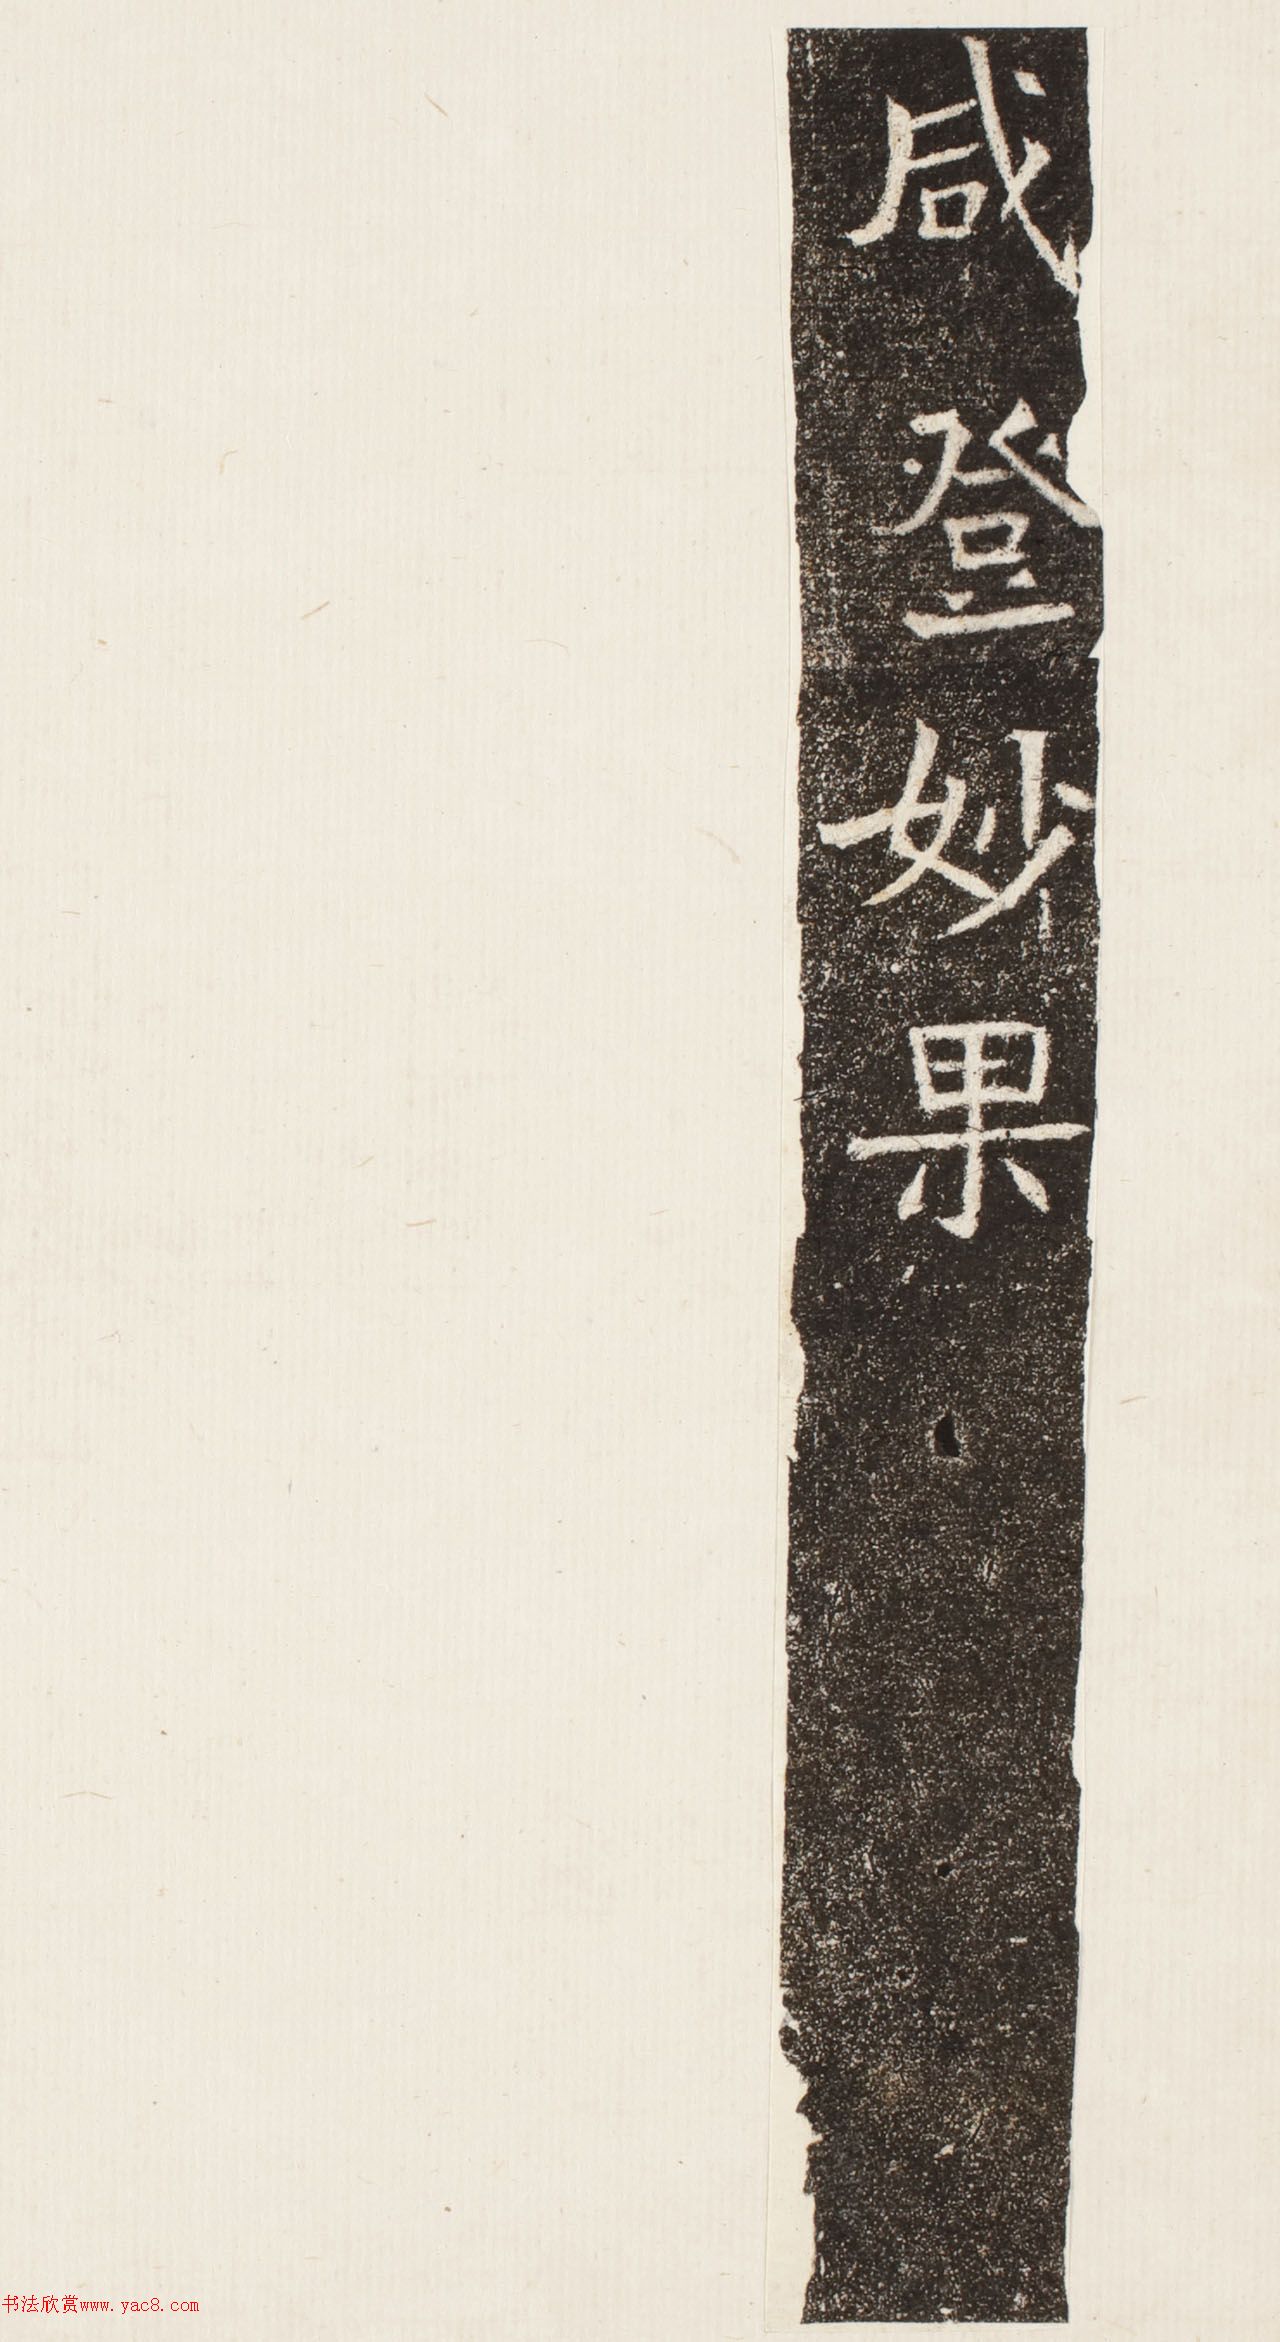 咸登妙果
书法欣赏www.yac8.com